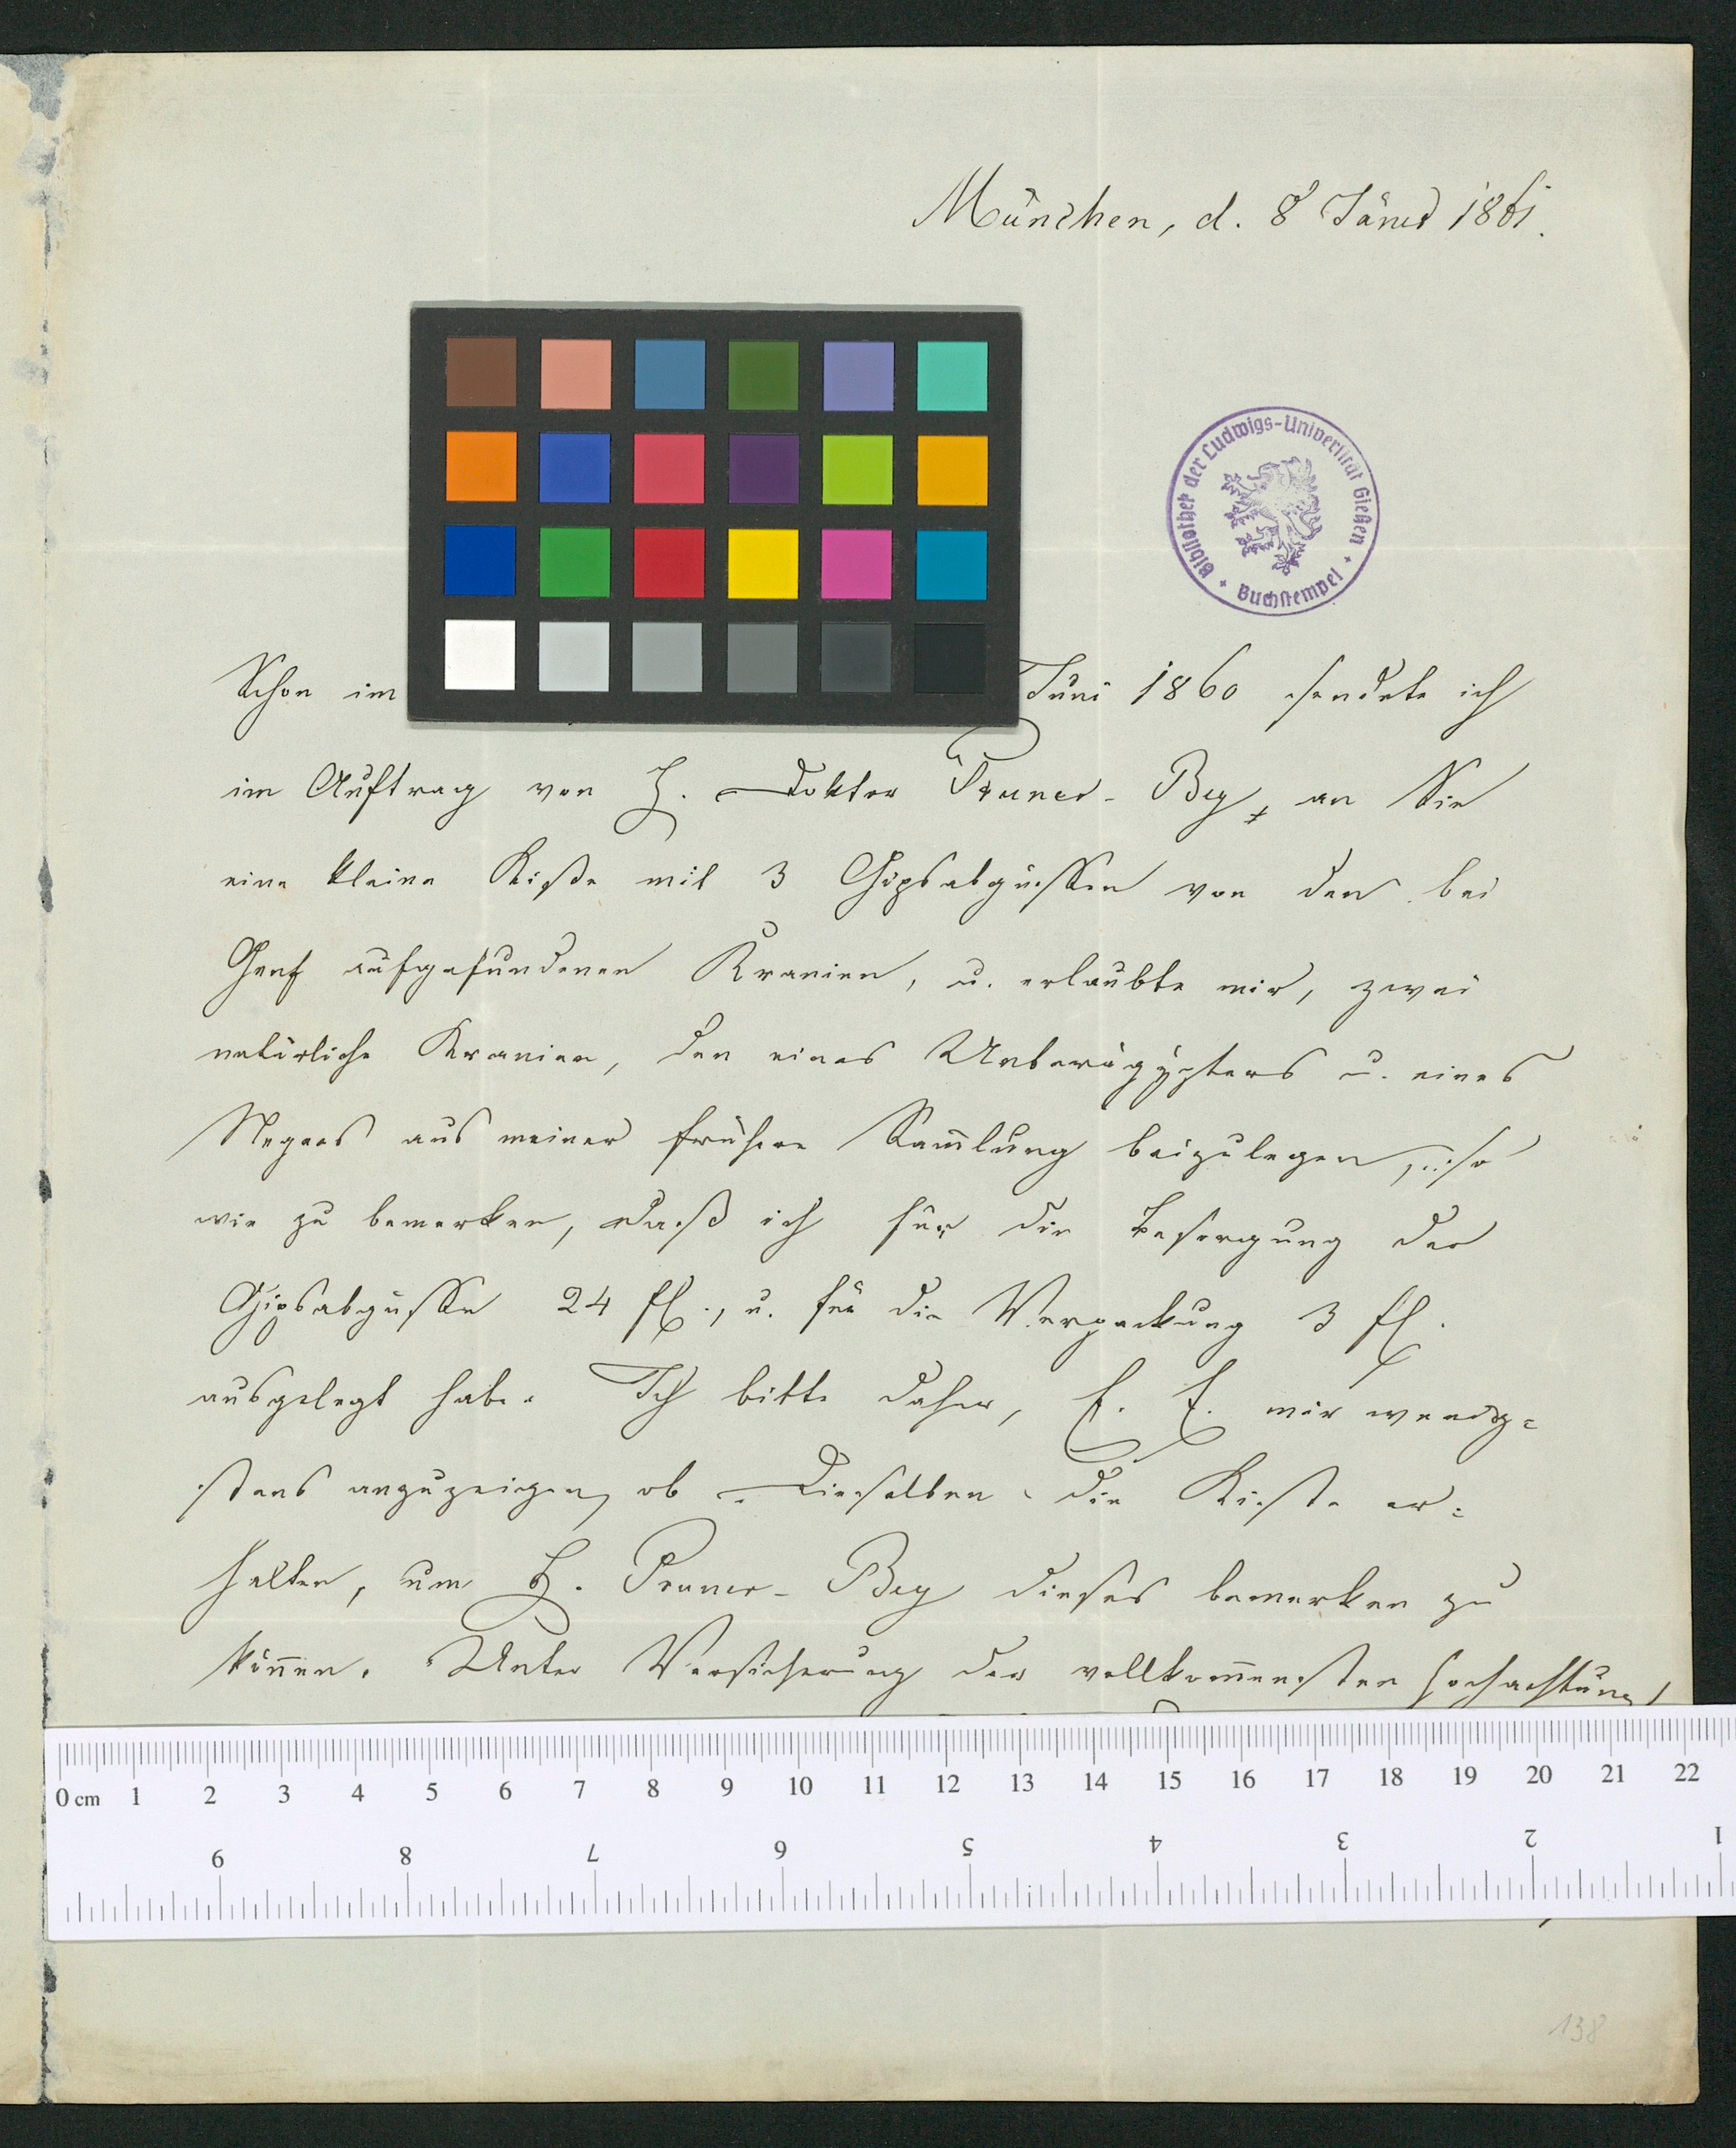 München, d. 8 Jäner 1861.
Bibliothek der Ludwigs-Universität Gießen
+ Buchstempel +
Schon im Juni 1860 sendete ich
im Auftrag von H. Doktor Pruner-Bey, an Sie
eine kleine Kiste mit 3 Gipsabgüssen von den bei
Genf aufgefundenen Kranien, u. erlaubte mir, zwei
natürliche Kranien, den eines Unterägypters u. eines
Negers aus meiner frühern Sam̅lung beizulegen, so
wie zu bemerken, daß ich für die Besorgung der
Gipsabgüsse 24 fl., u. für die Verpackung 3 fl.
ausgelegt habe. Ich bitte daher, E. E. mir wenig=
stens anzuzeigen, ob Dieselben die Kiste er=
halten, um H. Pruner-Bey dieses bemerken zu
kön̅en. Unter Versicherung der vollkom̅ensten Hochachtung
0 cm 1 2 3 4 5 6 7 8 9 10 11 12 13 14 15 16 17 18 19 20 21 22
9 8 7 6 5 4 3 2 1
138